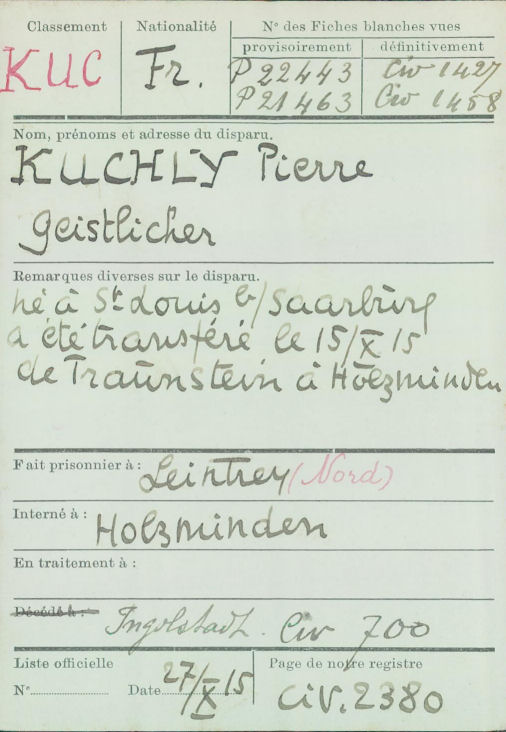 Classement
Nationalité
Nos des Fiches blanches vues
provisoirement
définitivement
KUC
Fr.
P 22443
Civ 1427
P 21463
Civ 1458
Nom, prénoms et adresse du disparu.
KUCHLY Pierre
Geistlicher
Remarques diverses sur le disparu.
né à St Louis b/Saarbürg
a été transféré le 15/X 15
de Traunstein à Holzminden
Fait prisonnier à : Leintrey (Nord)
Interné à : Holzminden
En traitement à :
Décédé à : Ingolstadt. Civ 700
Liste officielle
Page de notre registre
N° Date 27/X 15
Civ. 2380